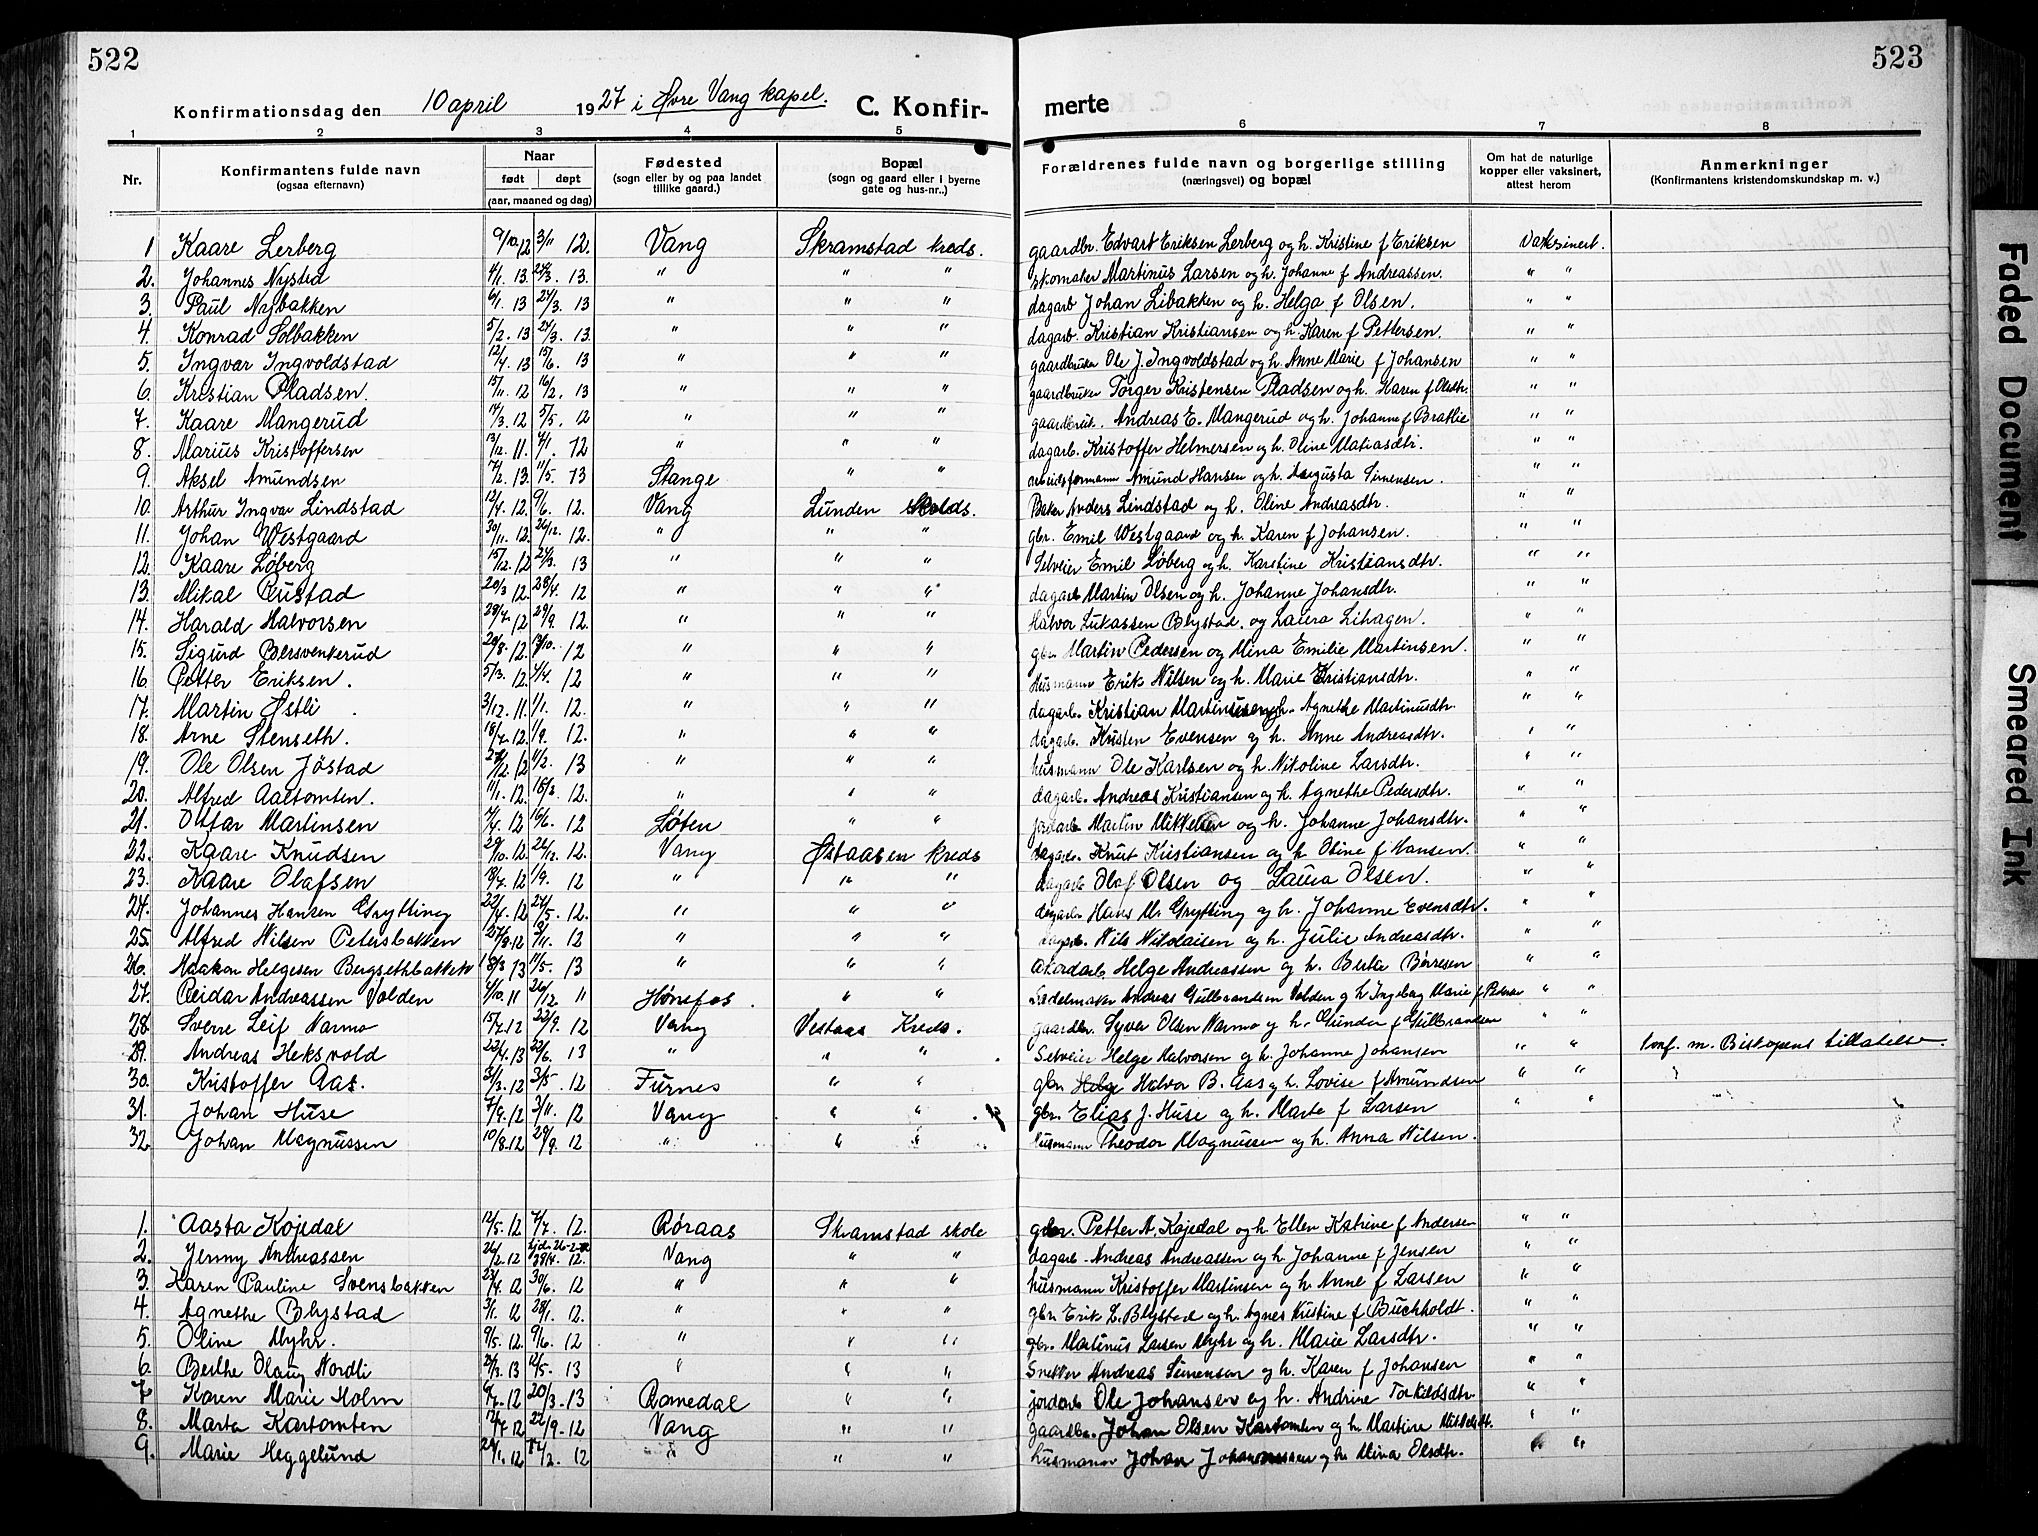 522
523
Konfirmationsdag den 10 april 1927 i Øvre Vang kapel. C. Konfir- merte
1 2 3 4 5 6 7 8
Nr. Konfirmantens fulde navn (ogsaa efternavn) Naar født døpt (aar, maaned og dag) Fødested (sogn eller by og paa landet tillike gaard.) Bopæl (sogn og gaard eller i byerne gate og hus-nr..) Forældrenes fulde navn og borgerlige stilling (næringsvei) og bopæl Om hat de naturlige kopper eller vaksinert, attest herom Anmerkninger (Konfirmantens kristendomskundskap m. v.)
1 Kaare Lerberg 9/10 12 3/11 12. Vang Skramstad kreds. gaardbr. Edvart Eriksen Lerberg og h. Kristine f Eriksen Vaksinert.
2. Johannes Nystad 4/1. 13 24/3. 13. " " " skomaker Martinus Larsen og h. Johanne f Andreassen. " "
3. Paul Nybakken 6/1. 13 24/3. 13 " " " dagarb Johan Libakken og h. Helga f Olsen. " "
4. Konrad Solbakken 5/2. 13 24/3. 13. " " " dagarb. Kristian Kristiansen og h. Karen f Pettersen. " "
5. Ingvar Ingvoldstad 12/4. 13 15/6. 13 " " " gaardbruker Ole J. Ingvoldstad og h. Anne Marie f Johansen " "
6. Kristian Pladsen. 15/11. 12 16/2. 13 " " " gaardbruker Torger Kristensen Pladsen og h. Karen f Olsdtr. " "
7. Kaare Mangerud 14/3. 12 5/5. 12 " " " gaardbruk. Andreas E. Mangerud og h. Johanne f Bratlie " "
8. Marius Kristoffersen 13/12. 11. 4/1. 12 " " " dagarb. Kristoffer Helmersen og h. Oline Matiasdtr. " "
9. Aksel Amundsen 7/2. 13. 11/5. 13 Stange " " arbeidsformann Amund Hansen og h. Augusta Simensen. " "
10. Arthur Ingvar Lindstad 12/4. 12. 9/6. 12. Vang Lunden Skolds. Baker Anders Lindstad og h. Oline Andreasdtr. " "
11. Johan Westgaard 30/11. 12. 26/12. 12. " " " gbr. Emil Westgaard og h. Karen f Johansen. " "
12. Kaare Løberg 15/12. 12 24/3. 13 " " " Selveier Emil Løberg og h. Karstine Kristiansdtr. " "
13. Mikal Rustad 20/3 12. 28/4. 12 " " " dagarb Martin Olsen og h. Johanne Johansdtr. " "
14. Harald Halvorsen 28/7. 12 29/9. 12. " " " Halvor Lukassen Blystad. og Laura Lihagen. " "
15. Sigurd Bersvenkerud 20/8. 12. 13/10. 12 " " " gbr Martin Pedersen og Mina Emilie Martinsen. " "
16. Petter Eriksen. 5/3. 12. 4/4. 12 " " " Husmann Erik Nilsen og h. Marie Kristiansdtr. " "
17. Martin Østli 3/12. 11. 1/1. 12. " " " dagarb. Kristian Martinusen og h. Agnethe Martinusdtr. " "
18. Arne Stenseth. 18/7. 12. 1/9. 12. " " " dagarb. Kristen Evensen og h. Anne Andreasdtr. " "
19. Ole Olsen Jøstad /12. 12 /2. 13 " " " husmann Ole Karlsen og h. Nikoline Larsdtr. " "
20. Alfred Aaltomten. 11/1. 12. 18/3. 12. " " " dagarb. Andreas Kristiansen og h. Agnethe Pedersdtr. " "
21. Ottar Martinsen 7/4. 12 16/6. 12 Løten " " jordarb Martin Mikkelsen og h. Johanne Johansdtr. " "
22. Kaare Knudsen 29/10. 12. 26/12. 12. Vang Østaasen kreds dagarb. Knut Kristiansen og h. Oline f Hansen. " "
23. Kaare Olafsen 18/7. 12 1/9. 12 " " " dagarb Olaf Olsen og Laura Olsen. " "
24. Johannes Hansen Grytting 22/4. 12 24/5. 12. " " " dagarb Hans M. Grytting og h. Johanne Evensdtr. " "
25. Alfred Nilsen Petersbakken 27/9. 12 3/11. 12 " " " dagarb. Nils Nikolaisen og h. Julie Andreasdtr. " "
26. Haakon Helgesen Bergsethbakken 18/3 13 11/5. 13 " " " akordarb Helge Andreassen og h. Berte Børresen " "
27. Reidar Andreassen Volden 4/10. 11 26/12 11 Hønefos. " " Sadelmaker Andreas Gulbrandsen Volden og h Ingeborg Marie f Peders " "
28. Sverre Leif Narmo 15/7. 12 22/9. 12 Vang Vestaas Kreds. gaardbr. Syver Olsen Narmo og h. Gunda f Gulbrandsen " "
29. Andreas Heksvold 22/4. 13 22/6. 13 " " " Selveier Helge Halvorsen og h. Johanne Johansen " " konf. m. Biskopens tillatelse.
30. Kristoffer Aas. 31/3. 12 3/5. 12 Furnes " " gbr. Helge Halvor B. Aas og h. Lovise f Amundsen " "
31. Johan Huse 7/9. 12 3/11. 12 Vang " " gbr. Elias J. Huse og h. Marte f Larsen " "
32. Johan Magnussen 10/8. 12 29/9. 12 " " " husmann Theodor Magnussen og h. Anna Nilsen.
1. Aasta Kojedal 12/5. 12 7/7. 12. Røraas Skramstad skole gbr. Petter A. Kojedal og h. Ellen Katrine f Andersen " "
2. Jenny Andreassen 26/2. 12 28/4. 12. Vang " " dagarb. Andreas Andreassen og h. Johanne f Jensen " "
3. Karen Pauline Svensbakken 23/4. 12 30/6. 12 " " " husmann Kristoffer Martinsen og h. Anne f Larsen " "
4. Agnethe Blystad 3/1. 12 28/1. 12. " " " gbr. Erik L. Blystad og h. Agnes Kristine f Buchholdt. " "
5. Oline Myhr. 9/5. 12. 9/6. 12 " " " gbr. Martinus Larsen Myhr og h. Marie Larsdtr. " "
6. Berthe Olaug Nordli 24/3. 13 12/5. 13 " " " Snekker Andreas Simensen og h. Karen f Johansen " "
7 Karen Marie Holm 9/7. 12 20/3. 13 Romedal " " jordarb Ole Johansen og h. Andrine Torkildsdtr. " "
8. Marta Kartomten 12/7 12 22/9. 12 Vang " " gaardbr. Johan Olsen Kartomten og h Martine Mikkelsdt. " "
9. Marie Heggelund 24/1. 12 /2. 12 " " " husmann Johan Johannessen og h. Mina Olsdtr. " "
Faded Document
Smeared Ink